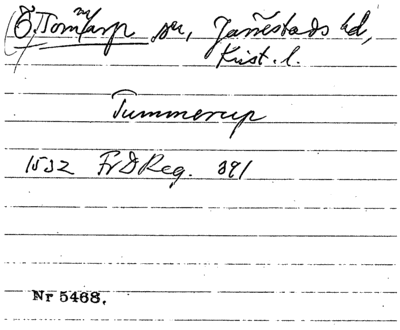 Ö. Tommarp sn, Järrestads hd,
Krist. l.
Tummerup
1532 FrDReg. 391
Nr 5468.